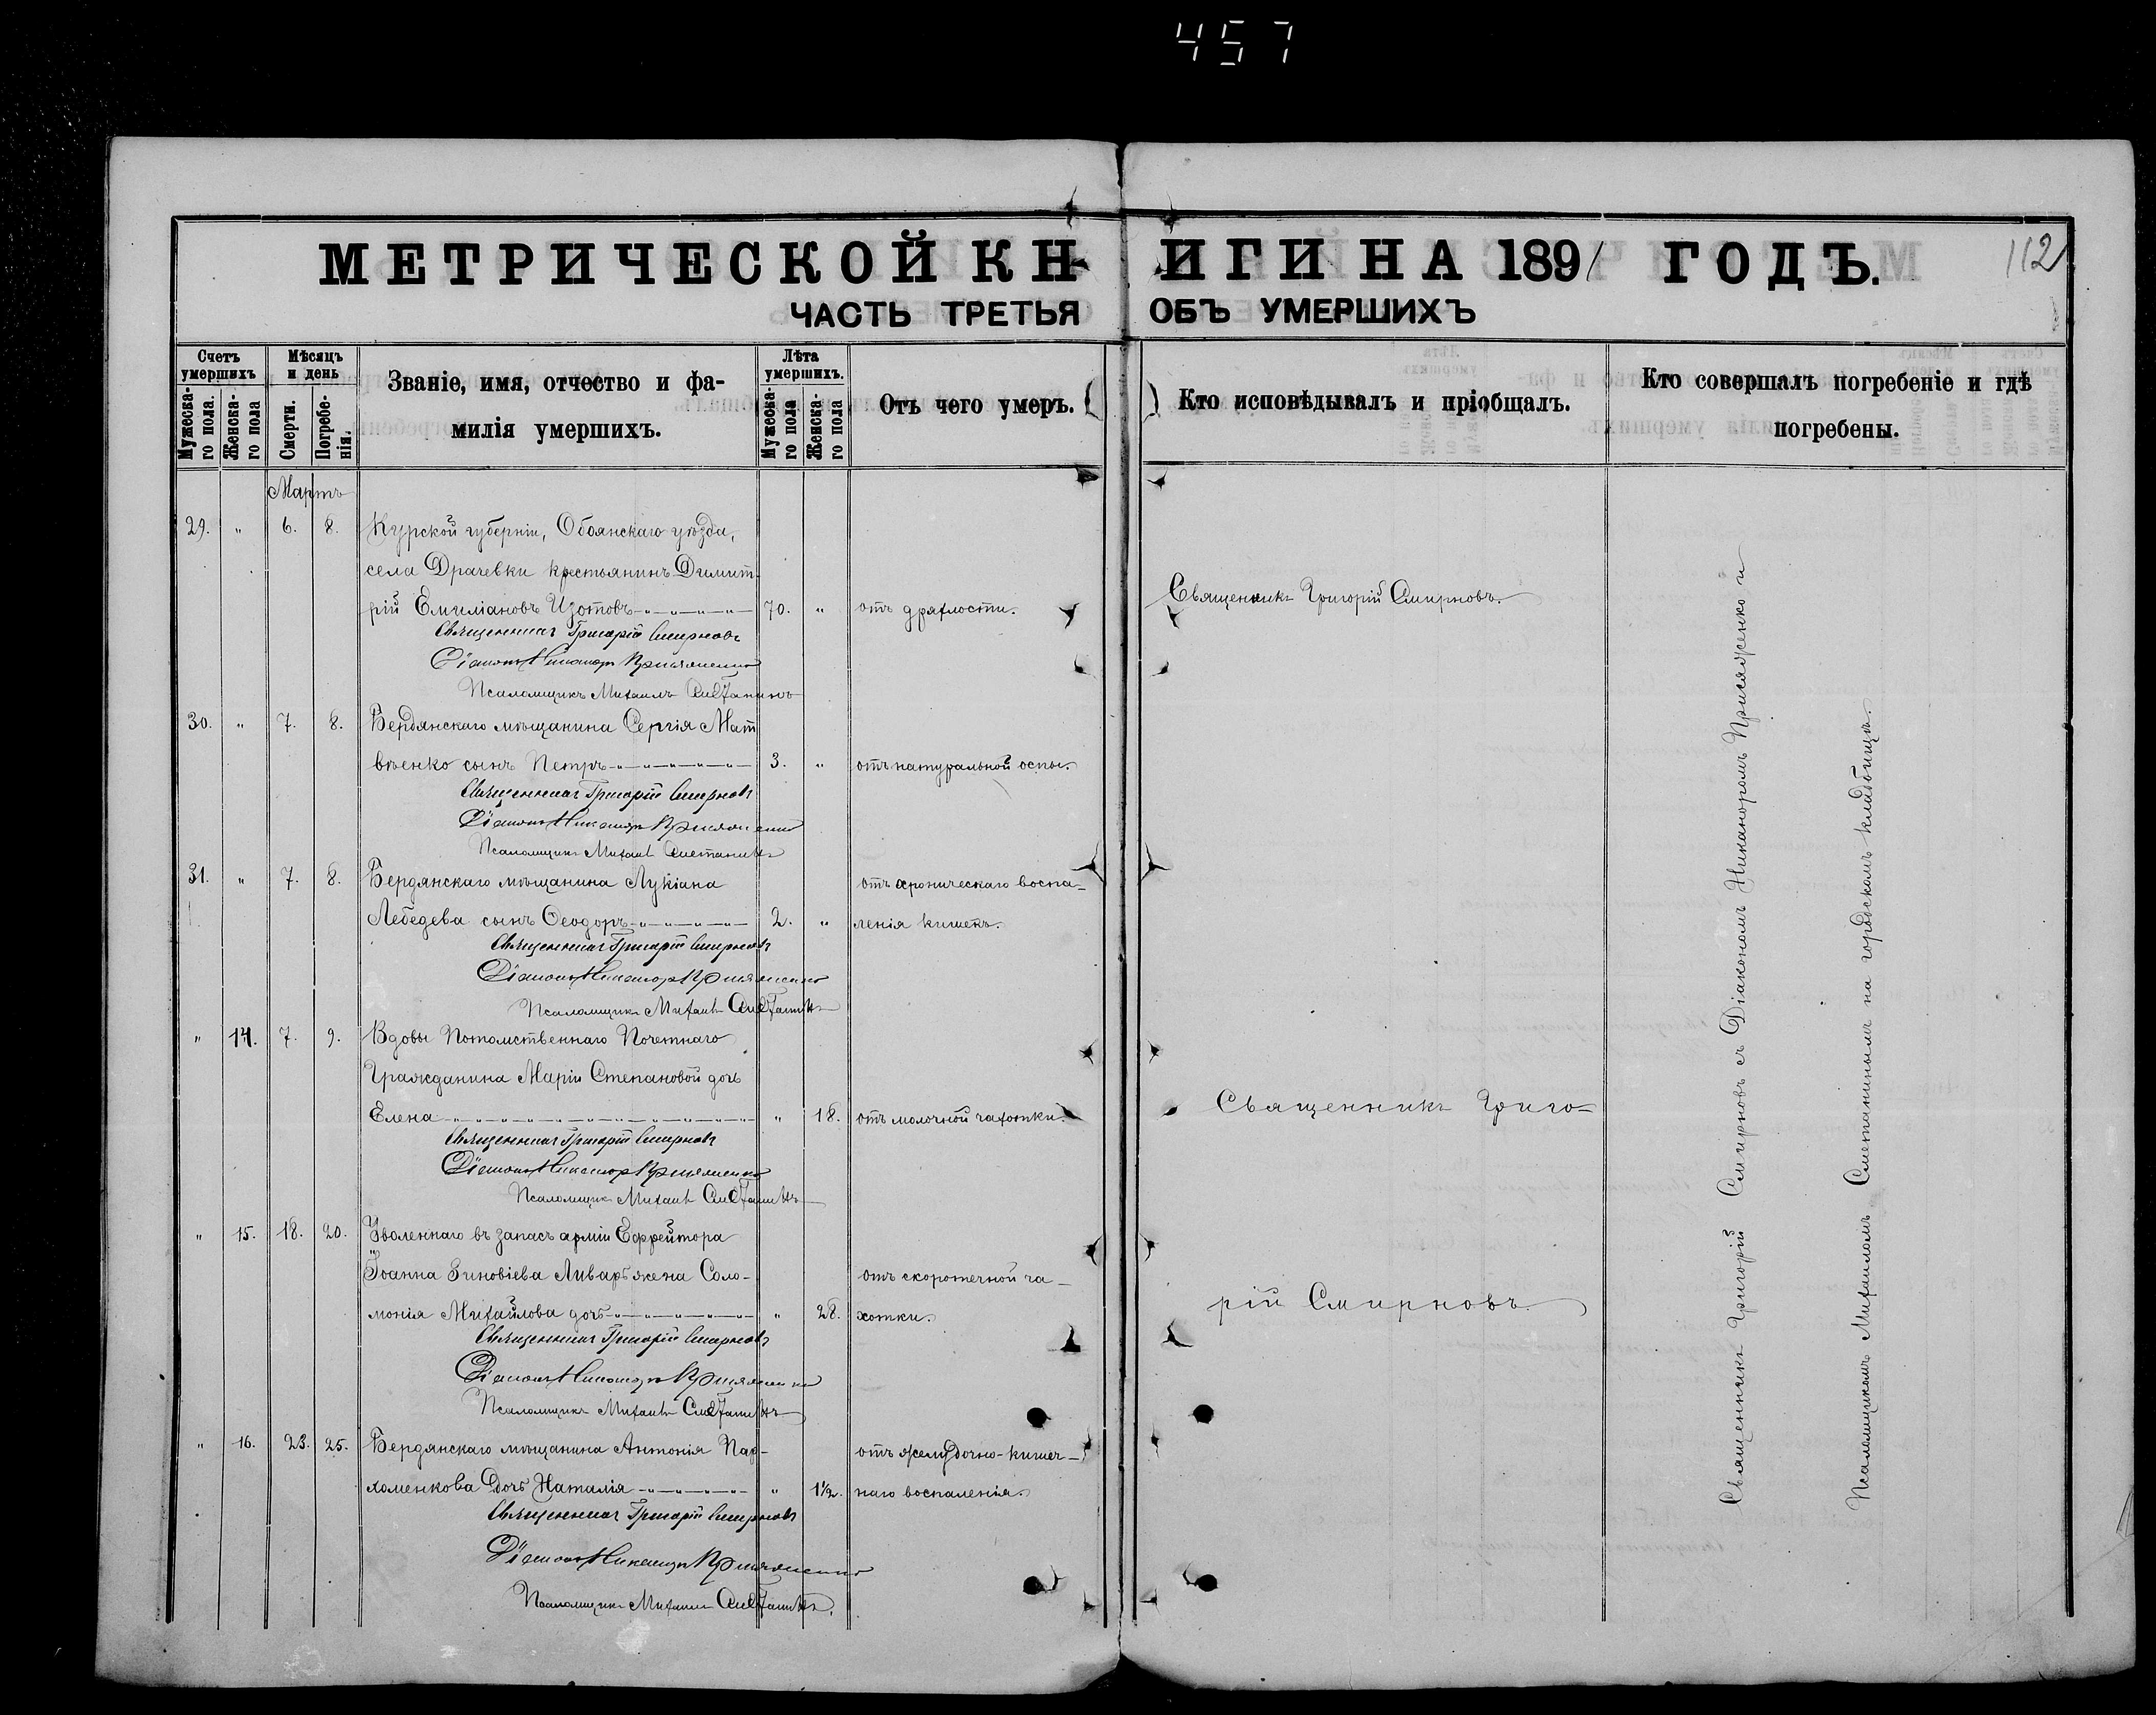 457
МЕТРИЧЕСКОЙ КНИГИ НА 1891 ГОДЪ.
112
ЧАСТЬ ТРЕТЬЯ ОБЪ УМЕРШИХЪ
Счетъ умершихъ
Мужеска-го пола.
Женска-го пола
Мѣсяцъ и день
Смерти.
Погребе-нія.
Званіе, имя, отчество и фа-
милія умершихъ.
Лѣта умершихъ.
Мужеска-го пола
Женска-го пола
Отъ чего умеръ.
Кто исповѣдывалъ и пріобщалъ.
Кто совершалъ погребеніе и гдѣ
погребены.
Мартъ
29. " 6. 8. Курской губерніи, Обоянскаго уѣзда,
села Драчевки крестьянинъ Димит-
рій Емиліановъ Изотовъ 70. " отъ дряхлости. Священникъ Григорій Смирновъ.
Священникъ Григорій Смирновъ
Діаконъ Никаноръ Присяженко
Псаломщикъ Михаилъ Сметанинъ
30. " 7. 8. Бердянскаго мѣщанина Сергія Мат
вѣенко сынъ Петръ 3. " отъ натуральной оспы.
Священникъ Григорій Смирновъ
Діаконъ Никаноръ Присяженко
Псаломщикъ Михаилъ Сметанинъ
31. " 7. 8. Бердянскаго мѣщанина Лукіана отъ хроническаго воспа-
Лебедева сынъ Ѳеодоръ 2. " ленія кишекъ.
Священникъ Григорій Смирновъ
Діаконъ Никаноръ Присяженко
Псаломщикъ Михаилъ Сметанинъ
" 14. 7. 9. Вдовы Потомственнаго Почетнаго
Гражданина Маріи Степановой дочь
Елена " 18. отъ молочной чахотки. Священникъ Григо-
Священникъ Григорій Смирновъ
Діаконъ Никаноръ Присяженко
Псаломщикъ Михаилъ Сметанинъ
" 15. 18. 20. Уволеннаго въ запасъ арміи Ефрейтора
Іоанна Зиновіева жена Соло- отъ скоротечной ча-
монія Михайлова дочь " 28. хотки. рій Смирновъ.
Священникъ Григорій Смирновъ
Діаконъ Никаноръ Присяженко
Псаломщикъ Михаилъ Сметанинъ
" 16. 23. 25. Бердянскаго мѣщанина Антонія Пар- отъ желудочно-кишеч-
хоменкова дочь Наталія " 1½. наго воспаленія.
Священникъ Григорій Смирновъ
Діаконъ Никаноръ Присяженко
Псаломщикъ Михаилъ Сметанинъ.
Священникъ Григорій Смирновъ съ Діакономъ Никаноромъ Присяженко и
Псаломщикомъ Михаиломъ Сметанинымъ на городскомъ кладбищѣ.